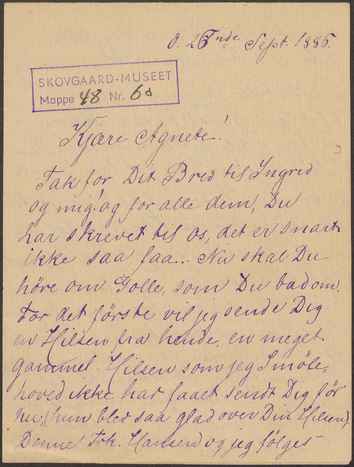 d. 26nde Sept. 1885.
SKOVGAARD-MUSEET
Mappe 48 Nr. 60
Kjære Agnete!
Tak for Dit Brev til Ingrid
og mig og for alle dem, Du
har skrevet til os, det er snart
ikke saa faa... Nu skal Du
höre om Golle, som Du bad om.
For det förste vil jeg sende Dig
en Hilsen fra hende, en meget
gammel Hilsen som jeg Smöle-
hoved ikke har faaet sendt Dig för
nu (hun blev saa glad over Din Hilsen)
Denne Frk. Hansen og jeg fölges